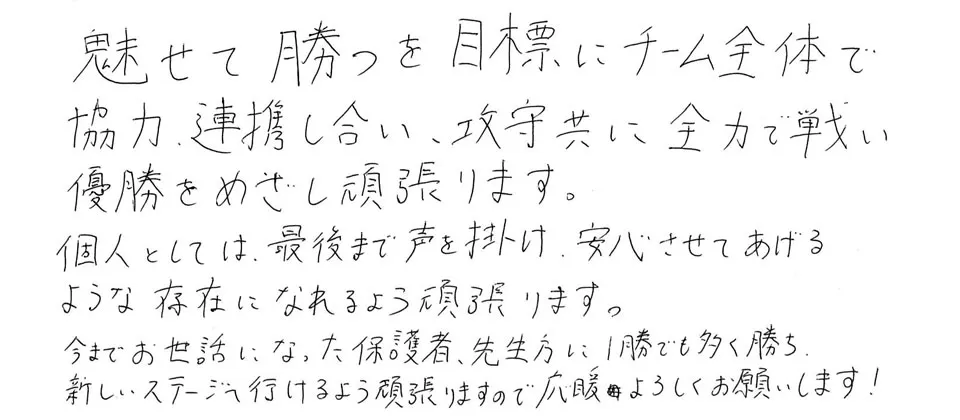 魅せて勝つを目標にチーム全体で
協力、連携し合い、攻守共に全力で戦い
優勝をめざし頑張ります。
個人としては、最後まで声を掛け、安心させてあげる
ような存在になれるよう頑張ります。
今までお世話になった保護者、先生方に1勝でも多く勝ち、
新しいステージへ行けるよう頑張りますので応援よろしくお願いします!